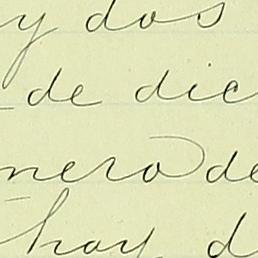 y dos
de dic
nero de
hay d